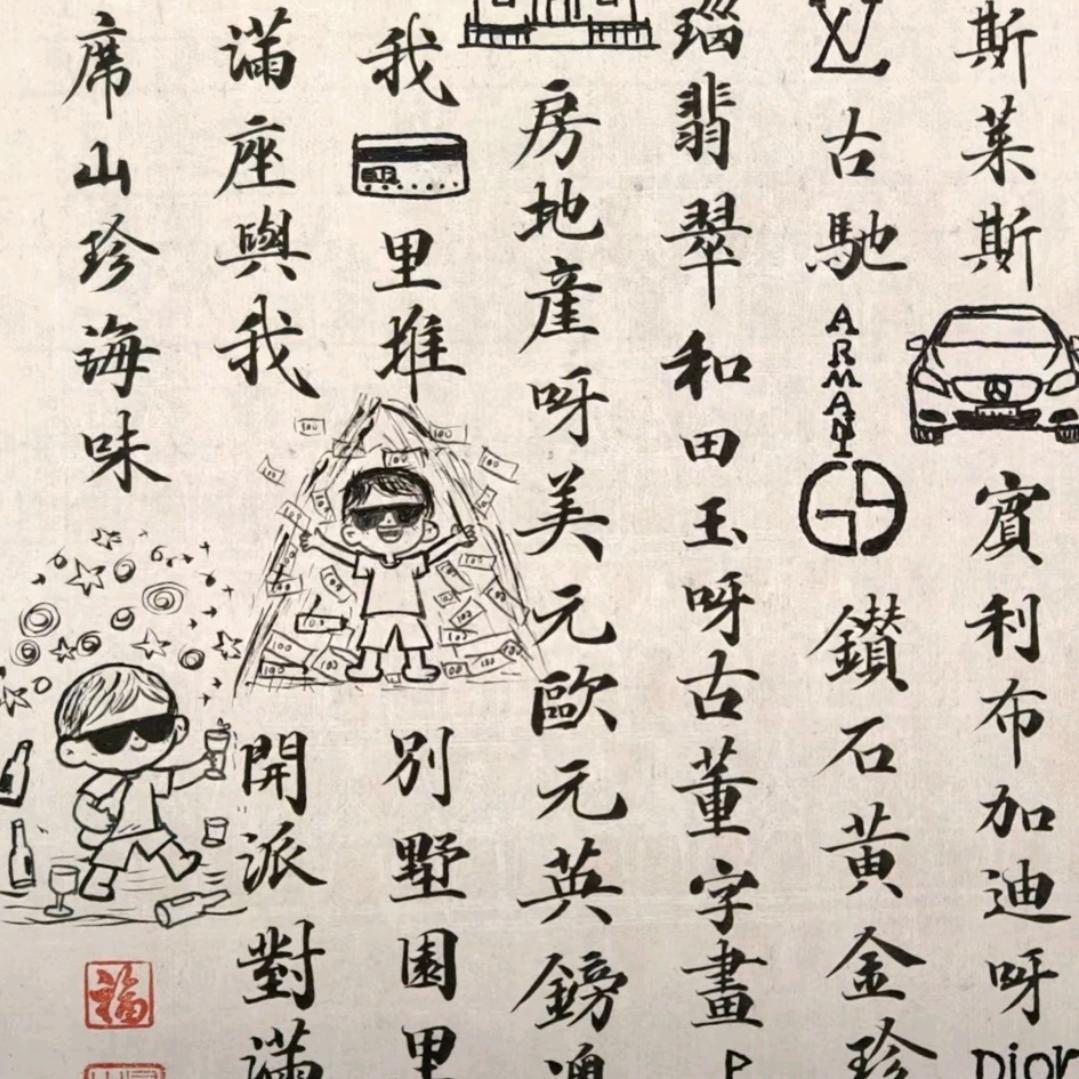 斯莱斯賓利布加迪呀Dior
LV古馳ARMANI鑽石黄金珍
瑙翡翠和田玉呀古董字畫
房地產呀美元歐元英鎊澳
我里堆別墅園里
滿座與我開派對滿
席山珍海味
福